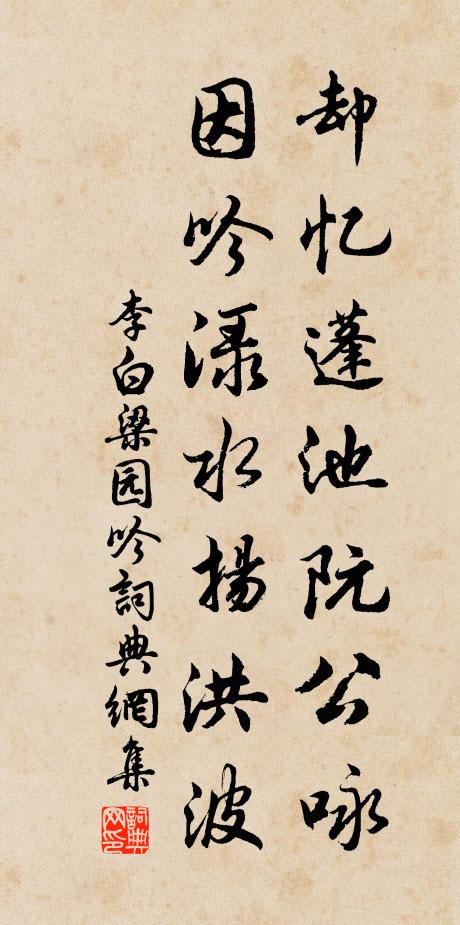 却忆蓬池阮公咏
因吟渌水扬洪波
李白梁园吟詞典網集
詞典网印